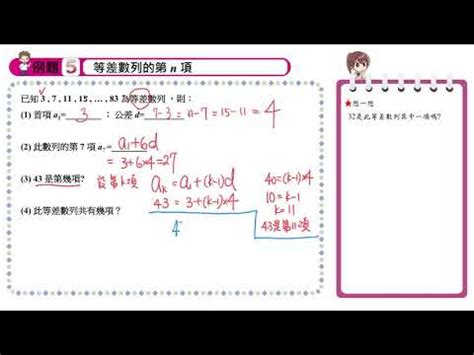 例題 5 等差數列的第 n 項
已知 3 , 7 , 11 , 15 , … , 83 為等差數列，則：
(1) 首項 a₁= 3 ；公差 d= 7-3 = 11-7 = 15-11 = 4
(2) 此數列的第 7 項 a₇= a₁+6d
= 3+6×4=27
(3) 43 是第幾項? 設第k項
aₖ = a₁+(k-1)d
43 = 3+(k-1)×4
40=(k-1)×4
10 = k-1
k = 11
43是第11項
(4) 此等差數列共有幾項？
4
★想一想
32是此等差數列其中一項嗎?